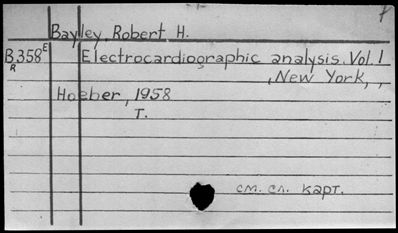 Bayley, Robert H.
B358 E Electrocardiographic analysis. Vol. 1
R , New York, ,
Hoeber, 1958
T.
см. сл. карт.